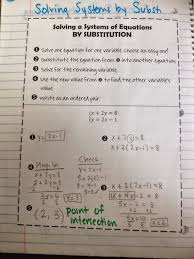 Solving Systems by Subst.
Solving a Systems of Equations
BY SUBSTITUTION
1 Solve one equation for one variable (choose an easy one!)
2 Substitute the equation from 1 into another equation.
3 Solve for the remaining variable.
4 Use the new value from 3 to find the other variable's value.
5 Write as an ordered pair.
x + 2y = 8
y = 2x - 1
1 y = 2x-1
2 x + 2(y) = 8
x + 2(2x-1) = 8
Plug in
x + 2y = 8
2 + 2y = 8
Check
y = 2x - 1
3 x + 2(2x-1) = 8
5x - 2 = 8
5x = 10
x = 2
y = 3
5 (2, 3) point of
intersection